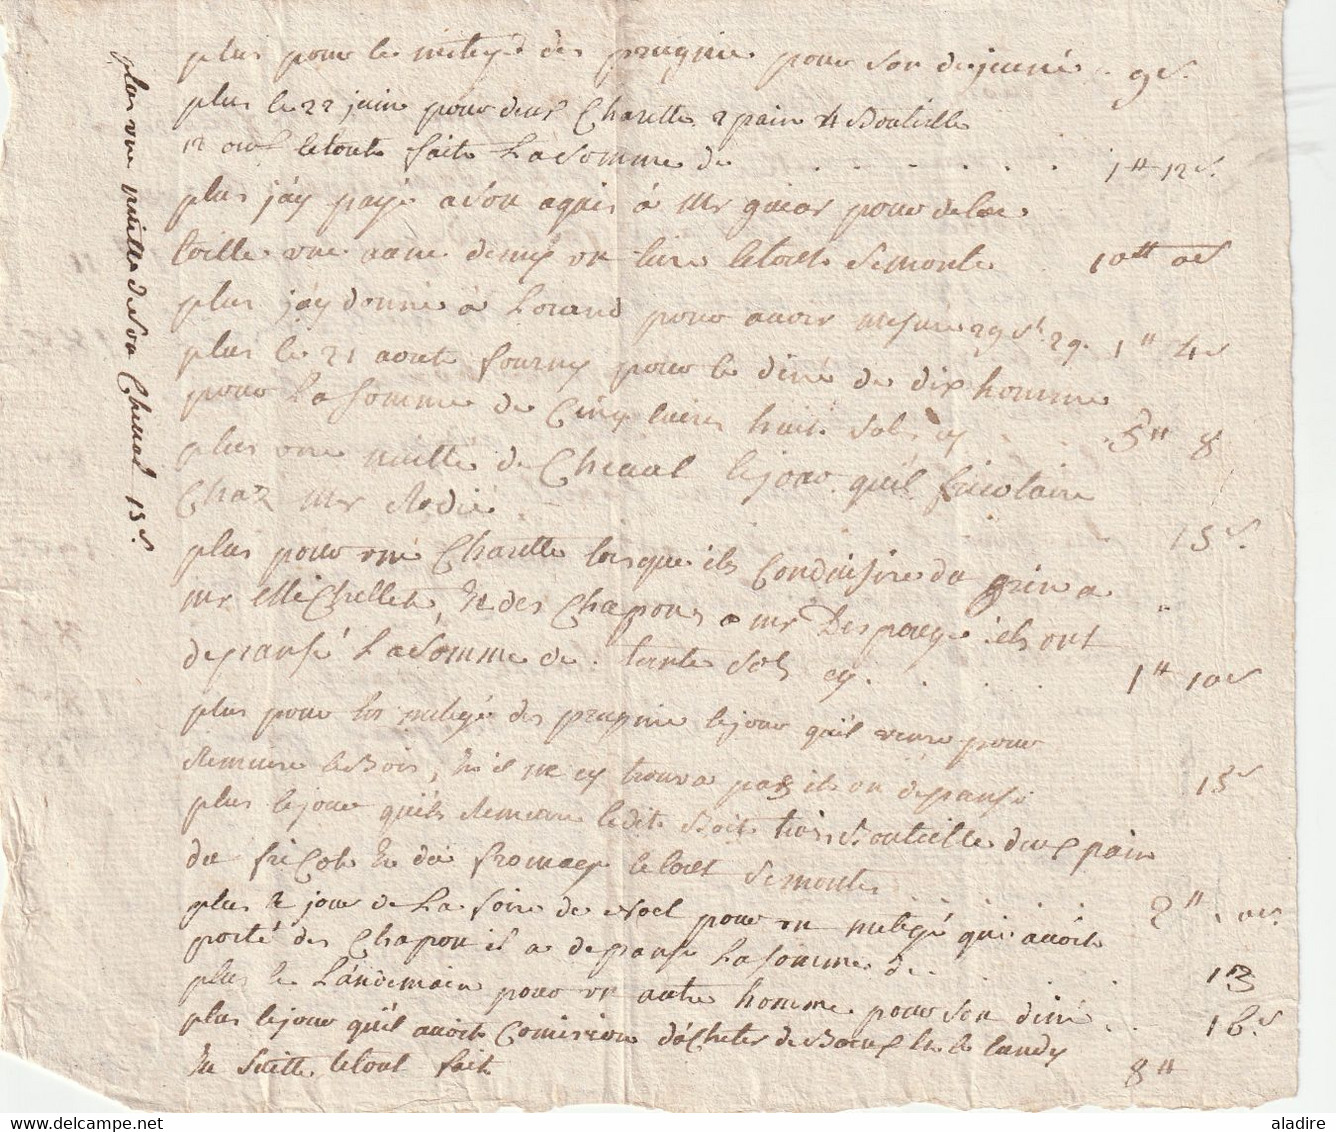 plus pour le meteyé des prugnie pour son dejeuné . 9 s.
plus le 22 juin pour deux Charette 2 pain 4 Bouteille
12 le toute fait La Somme de . . . . . . . 1 ₶ 12 s.
plus j'ay payé a son aquis à Mr pour de la
toille une aune demy un tiere le tout Se monte 10 ₶ 0 s
plus j'ay donné à pour avoir mesure 29 29. 1 ₶ 4 s
plus le 21 aout fourny pour le diné de dix homme
pour La Somme de Cinq livres huit Sols cy . . 5 ₶ 8
plus une nuitte de Cheval le jour qu'il
Chaz Mr Rodié . 15 s.
plus pour une Charette lorsque ils Conduisire du grin a
Mr Michellet, Et des Chapons a Mr Despouge ils ont
depansé La Somme de trente Sols cy. . . . 1 ₶ 10 s
plus pour les meteyé des prugnie le jour qu'il vinre pour
le Bois, Et il ne cy trouva pas ils on depansé 15 s
plus le jour qu'ils le dit Bois trois Bouteille deux pain
du fricot Et du fromage le tout Se monte . . . . 2 ₶ 10 s.
plus le jour de La foire de Noel pour un meteyé qui avoit
porté des Chapon il a depansé La Somme de . . . 13
plus le Landemain pour un autre homme pour Son diné . . 16 s
plus le jour qu'il avoit Comission d'acheter de Boeuf Et le landy
En Suitte le tout fait 8 ₶
plus une nuitte de son Cheval 15 s.